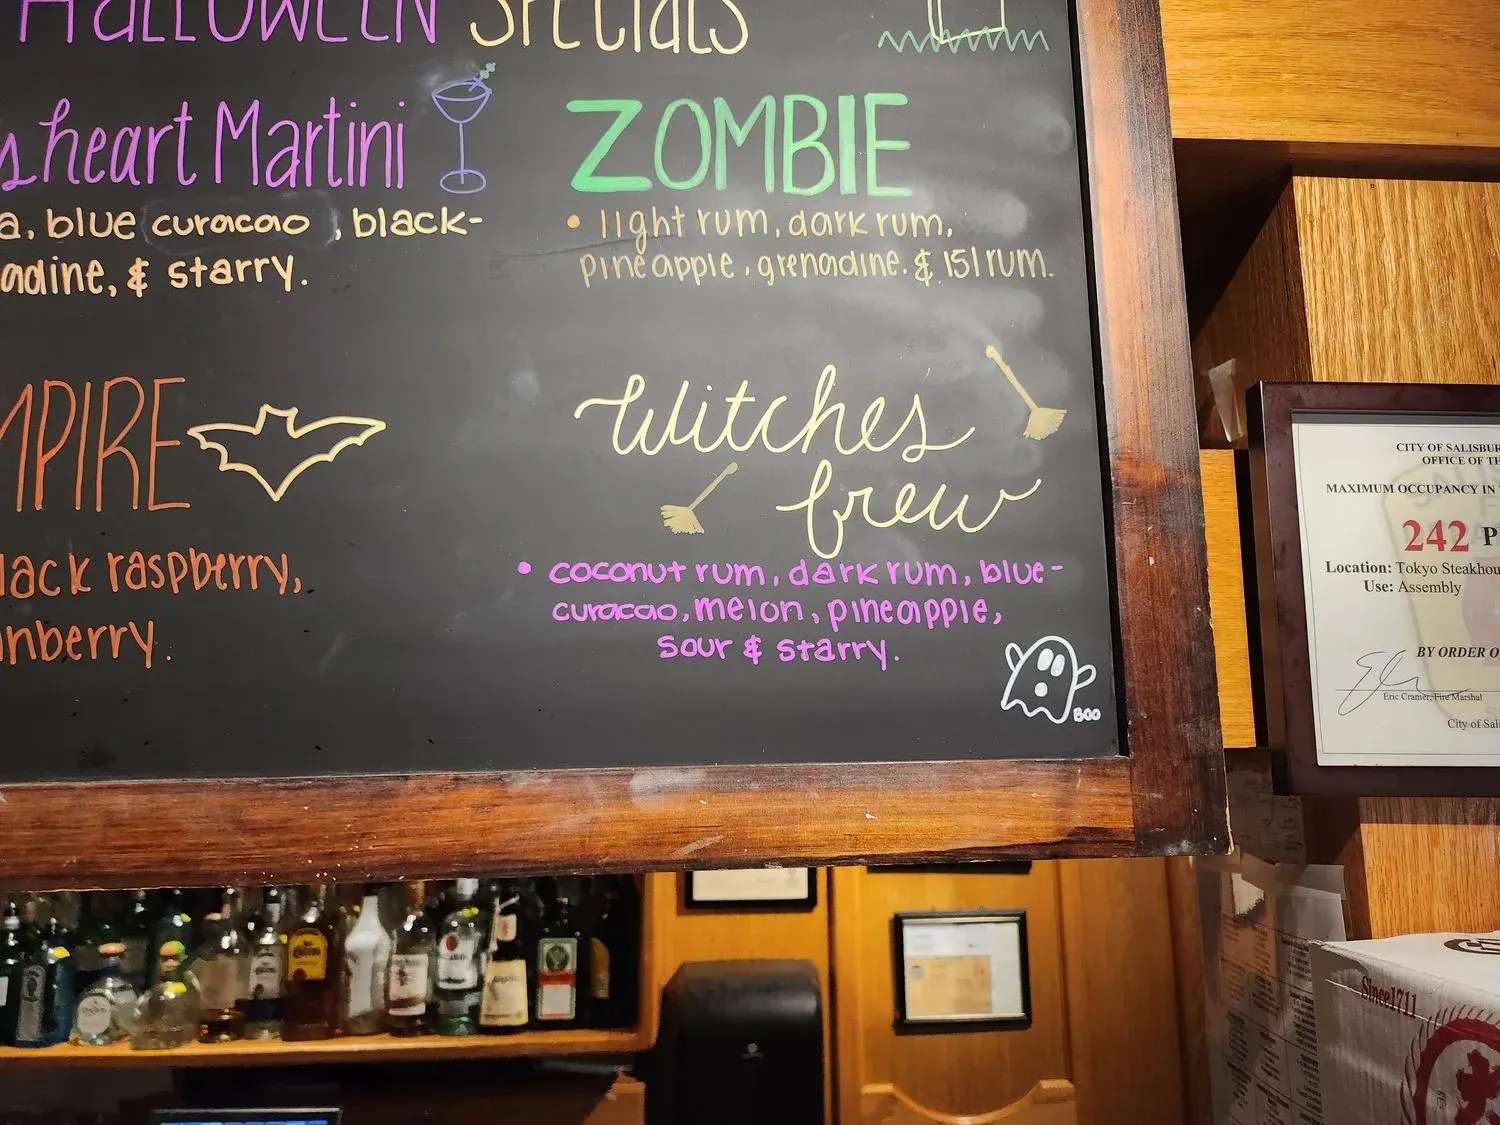 HALLOWEEN Specials
s heart Martini
a, blue curacao, black-
adine, & starry.
ZOMBIE
• light rum, dark rum,
pineapple, grenadine. & 151 rum.
MPIRE
lack raspberry,
anberry.
Witches
brew
• coconut rum, dark rum, blue-
curacao, melon, pineapple,
sour & starry.
BOO
CITY OF SALISBUR
OFFICE OF TH
MAXIMUM OCCUPANCY IN
242 P
Location: Tokyo Steakhou
Use: Assembly
BY ORDER O
Eric Cramer, Fire Marshal
City of Sali
Since 1711